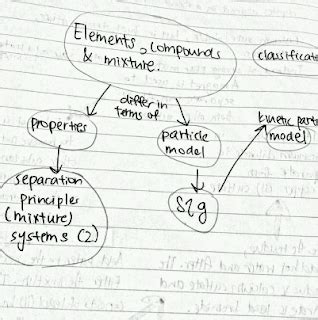 Elements, compounds
& mixture.
classificat
differ in
terms of
properties
particle
model
kinetic parti
model
separation
principles
(mixture)
systems (2)